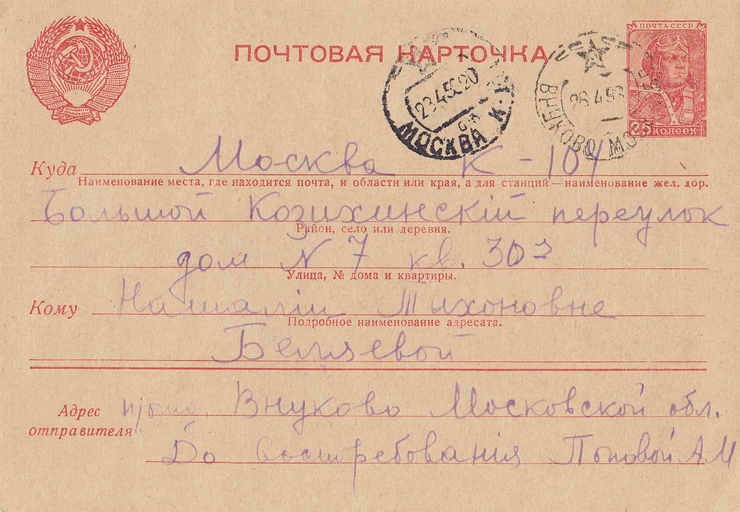 ПОЧТА СССР
ПОЧТОВАЯ КАРТОЧКА
25 КОПЕЕК
МОСКВА К-
ВНУКОВО МОС
Куда Москва К-104
Наименование места, где находится почта, и области или края, а для станций—наименование жел. дор.
Большой Козихинскій переулок
Район, село или деревня.
дом N 7 кв. 307
Улица, № дома и квартиры.
Кому Наталіи Тихоновне
Подробное наименование адресата.
Беляевой
Адрес отправителя Внуково Московской обл.
До востребованія Поповой АМ